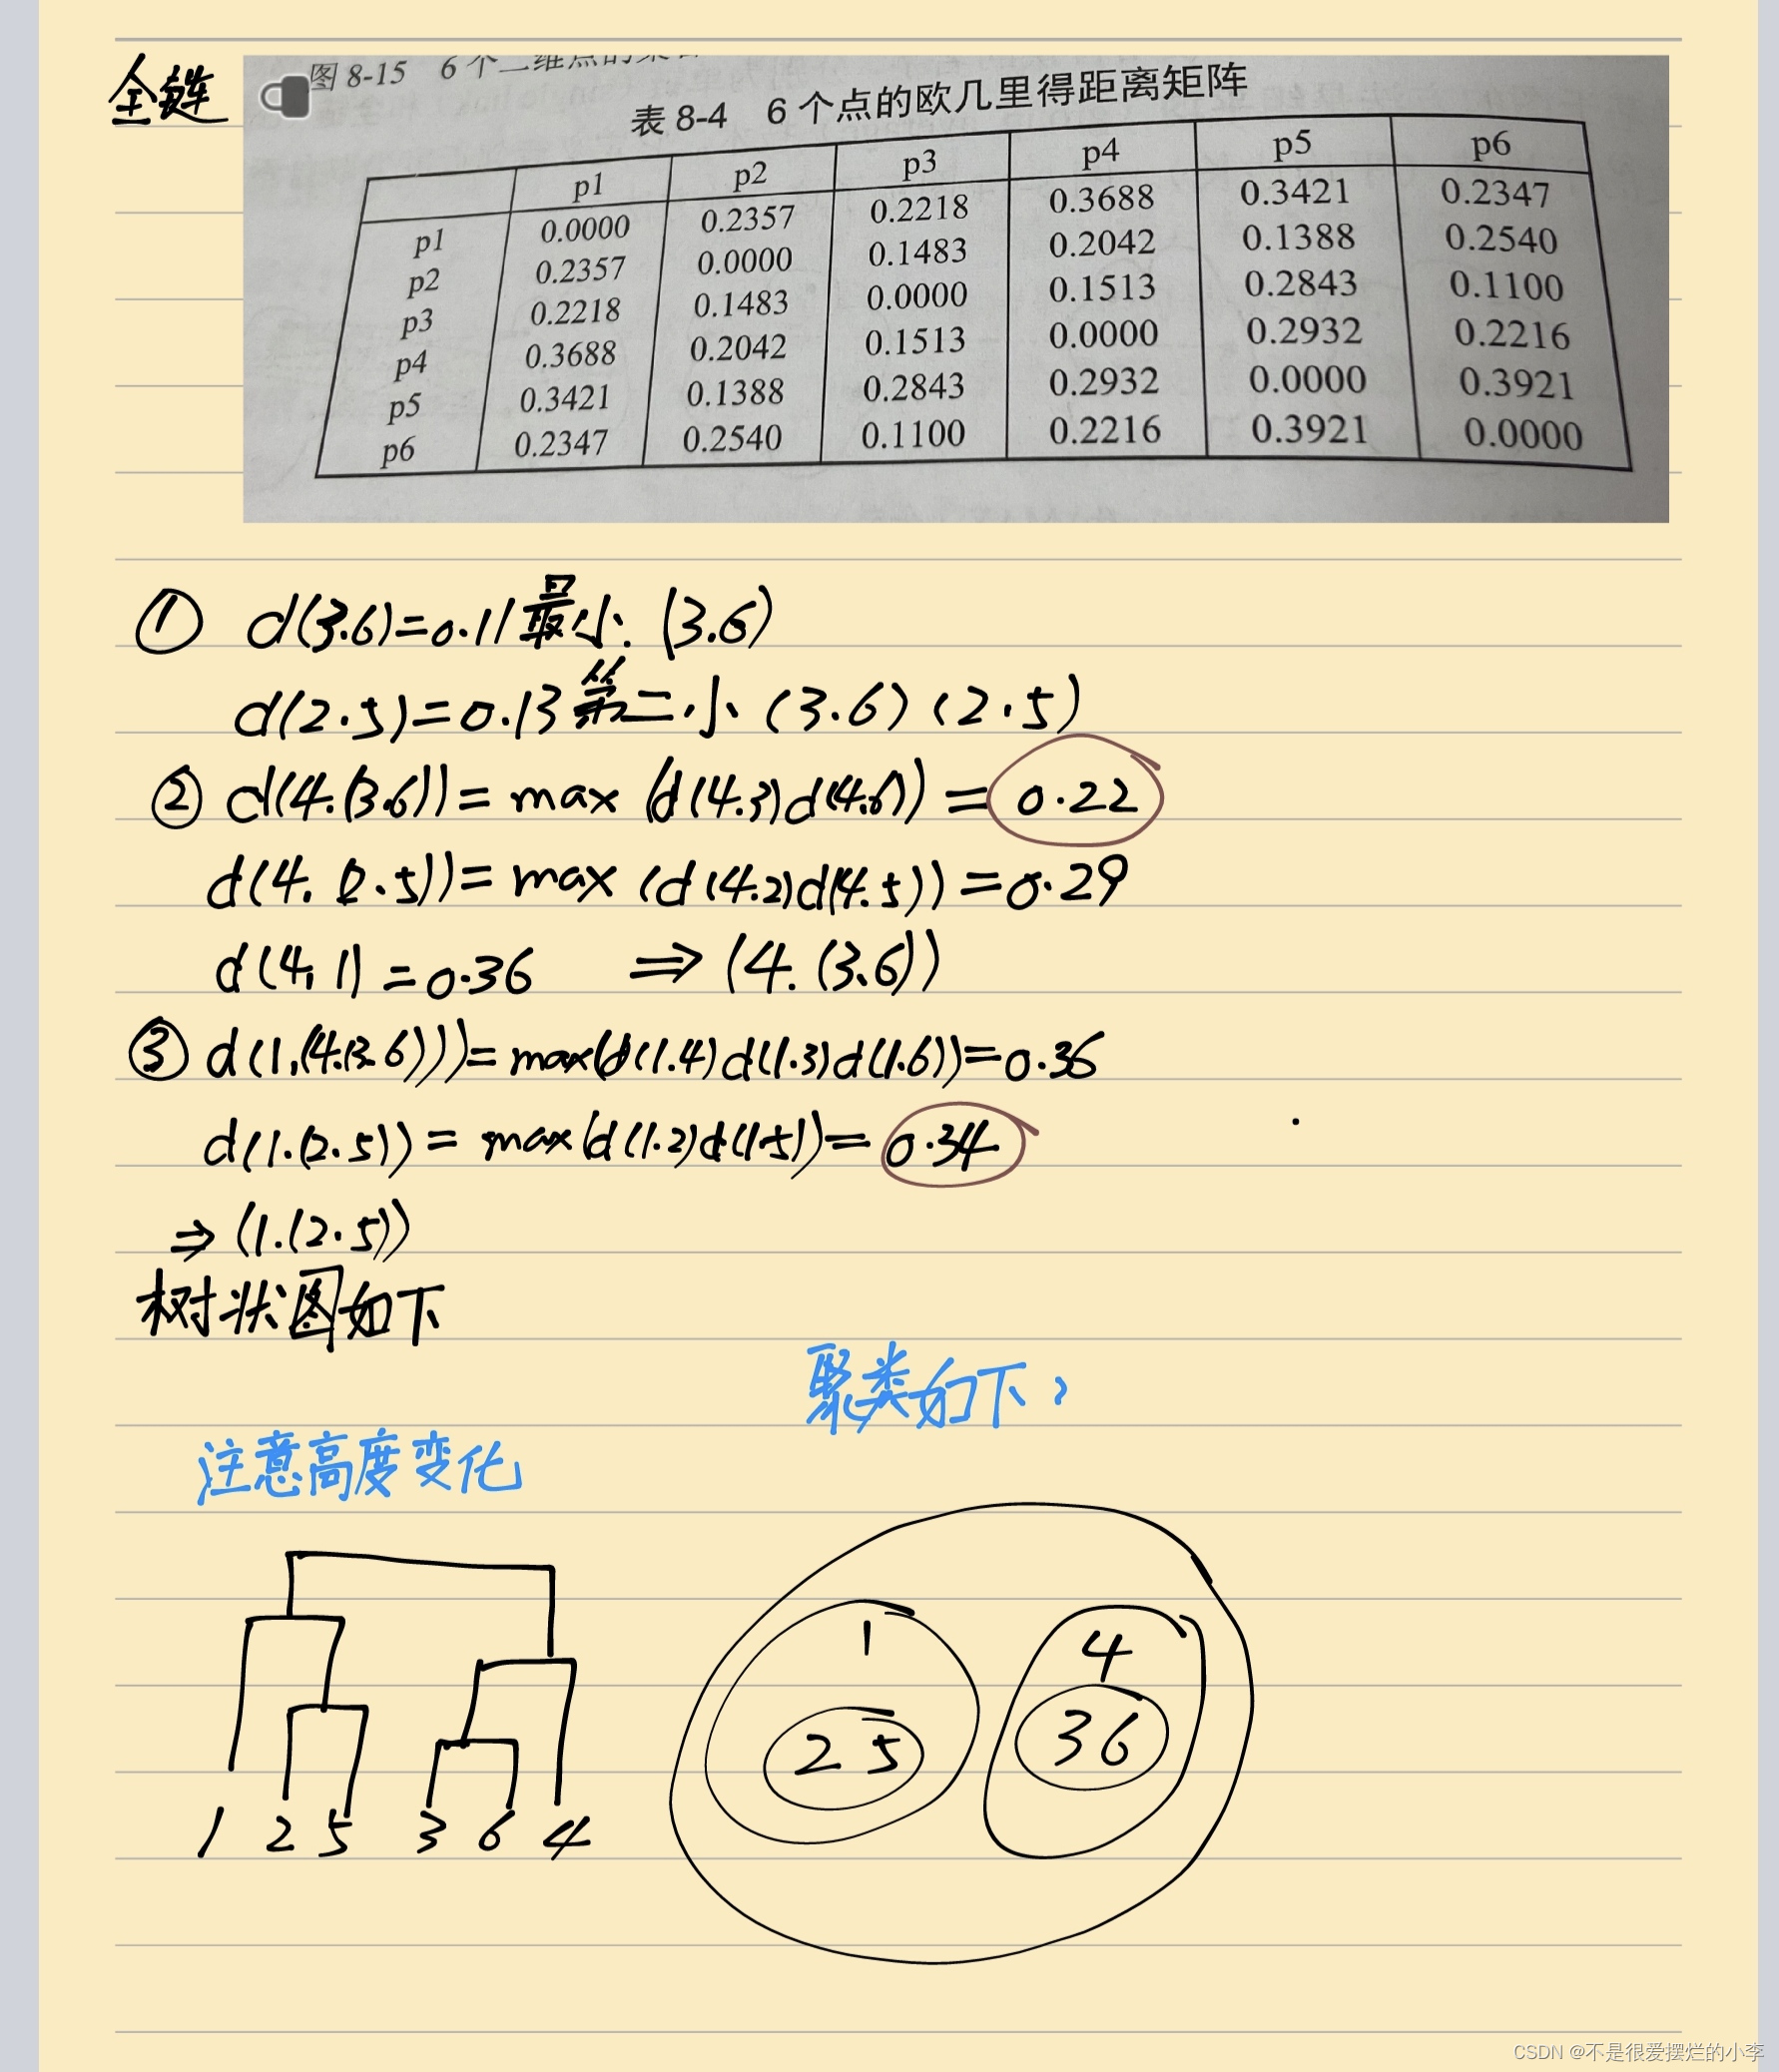 全链
图 8-15 6 个二维点的
表 8-4 6 个点的欧几里得距离矩阵
p1 p2 p3 p4 p5 p6
p1 0.0000 0.2357 0.2218 0.3688 0.3421 0.2347
p2 0.2357 0.0000 0.1483 0.2042 0.1388 0.2540
p3 0.2218 0.1483 0.0000 0.1513 0.2843 0.1100
p4 0.3688 0.2042 0.1513 0.0000 0.2932 0.2216
p5 0.3421 0.1388 0.2843 0.2932 0.0000 0.3921
p6 0.2347 0.2540 0.1100 0.2216 0.3921 0.0000
① d(3.6)=0.11最小. (3.6)
d(2.5)=0.13第二小 (3.6) (2.5)
② d(4.(3.6))= max (d(4.3)d(4.6)) = 0.22
d(4. (2.5))= max (d(4.2)d(4.5)) =0.29
d(4,1) =0.36 ⇒ (4. (3.6))
③ d(1,(4.(3.6)))=max(d(1.4)d(1.3)d(1.6))=0.36
d(1.(2.5)) = max(d(1.2)d(1.5))= 0.34
⇒ (1.(2.5))
树状图如下
聚类如下:
注意高度变化
1 4
2 5 3 6
1 2 5 3 6 4
CSDN @不是很爱摆烂的小李